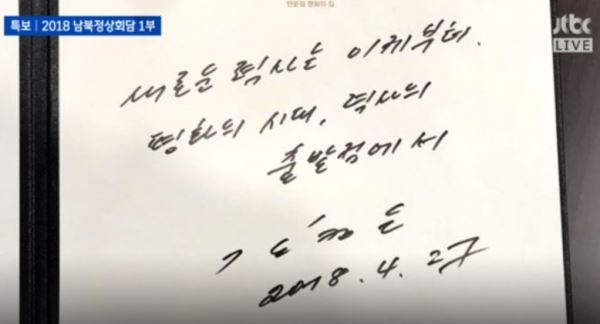 특보 2018 남북정상회담 1부
jtbc
LIVE
판문점 평화의 집
새로운 력사는 이제부터.
평화의 시대, 력사의
출발점에서
김정은
2018. 4. 27